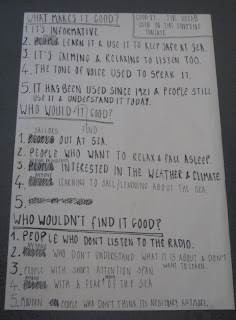 WHAT MAKES IT GOOD?
LOOK AT THE VOCAB
USED ON THE SHIPPING
FORECAST
1. IT'S INFORMATIVE.
2. LEARN IT & USE IT TO KEEP SAFE AT SEA.
3. IT'S CALMING & RELAXING TO LISTEN TOO.
4. THE TONE OF VOICE USED TO SPEAK IT.
5. IT HAS BEEN USED SINCE 1921 & PEOPLE STILL
USE IT & UNDERSTAND IT TODAY.
WHO WOULD FIND IT GOOD?
1. SAILORS OUT AT SEA.
2. PEOPLE WHO WANT TO RELAX & FALL ASLEEP.
3. INTERESTED IN THE WEATHER & CLIMATE
4. ANYONE LEARNING TO SAIL/LEARNING ABOUT THE SEA.
5.
WHO WOULDN'T FIND IT GOOD?
1. PEOPLE WHO DON'T LISTEN TO THE RADIO.
2. WHO DON'T UNDERSTAND WHAT IT IS ABOUT & DON'T
WANT TO LEARN.
3. PEOPLE WITH SHORT ATTENTION SPAN.
4. WITH A FEAR OF THE SEA
5. MODERN PEOPLE WHO DON'T THINK ITS NECESSARY ANYMORE.